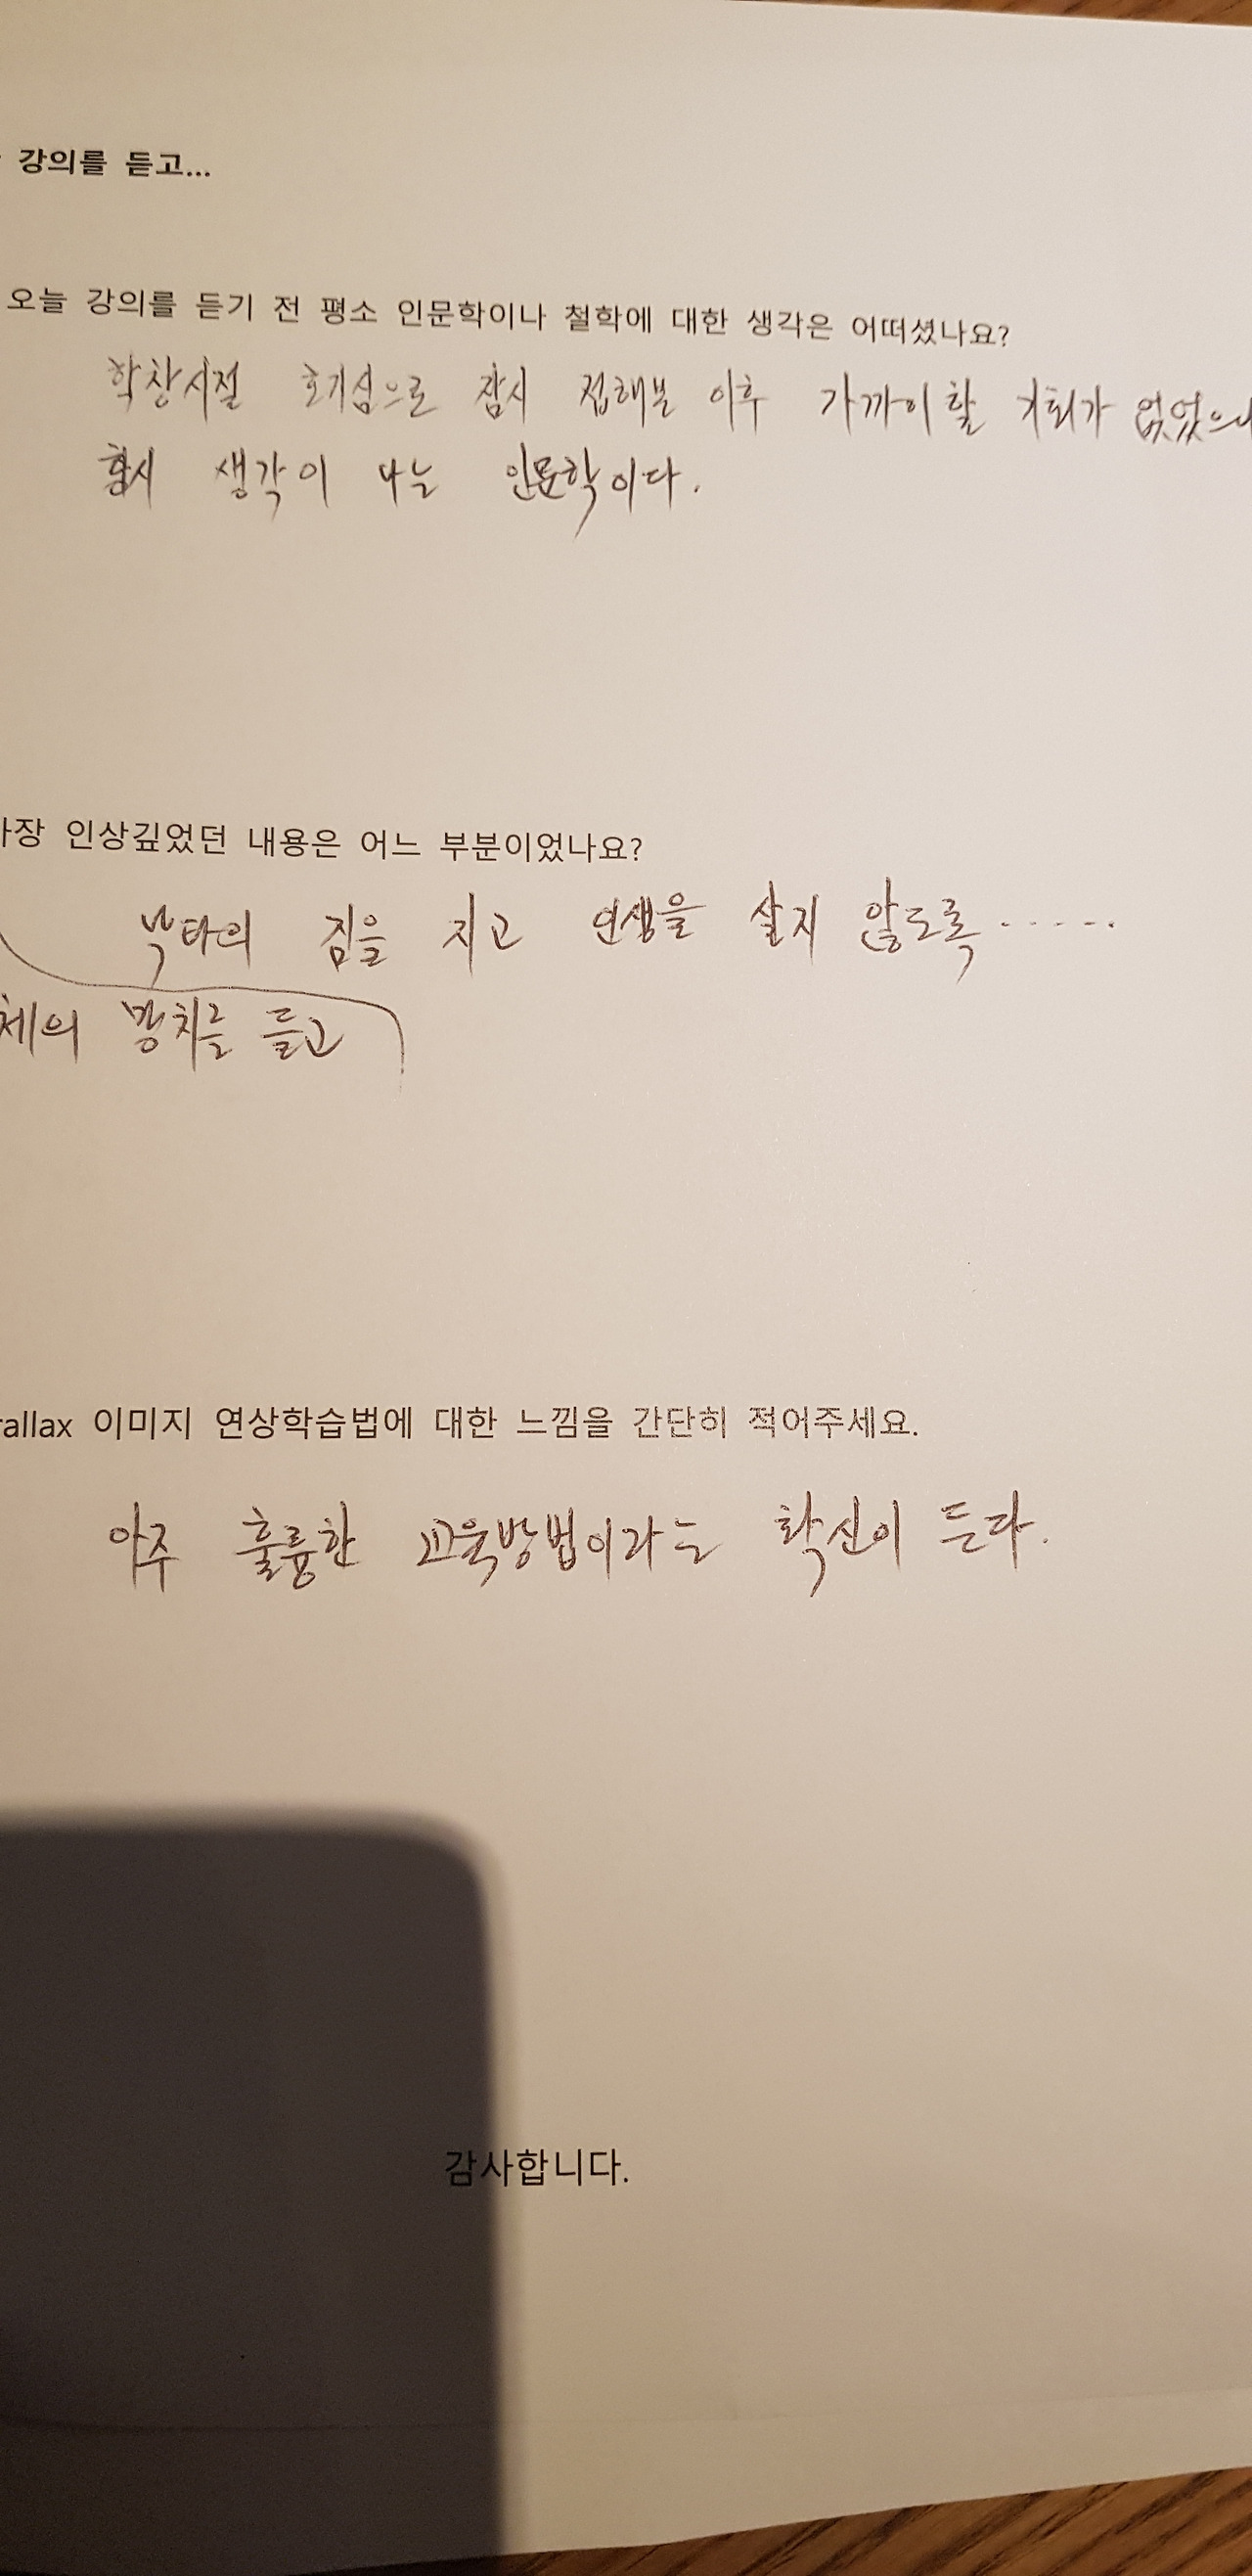 강의를 듣고...
오늘 강의를 듣기 전 평소 인문학이나 철학에 대한 생각은 어떠셨나요?
학창시절 호기심으로 잠시 접해본 이후 가까이 할 기회가 없었으나
항시 생각이 나는 인문학이다.
가장 인상깊었던 내용은 어느 부분이었나요?
낙타의 짐을 지고 인생을 살지 않도록 ......
체의 망치를 들고
rallax 이미지 연상학습법에 대한 느낌을 간단히 적어주세요.
아주 훌륭한 교육방법이라는 확신이 든다.
감사합니다.